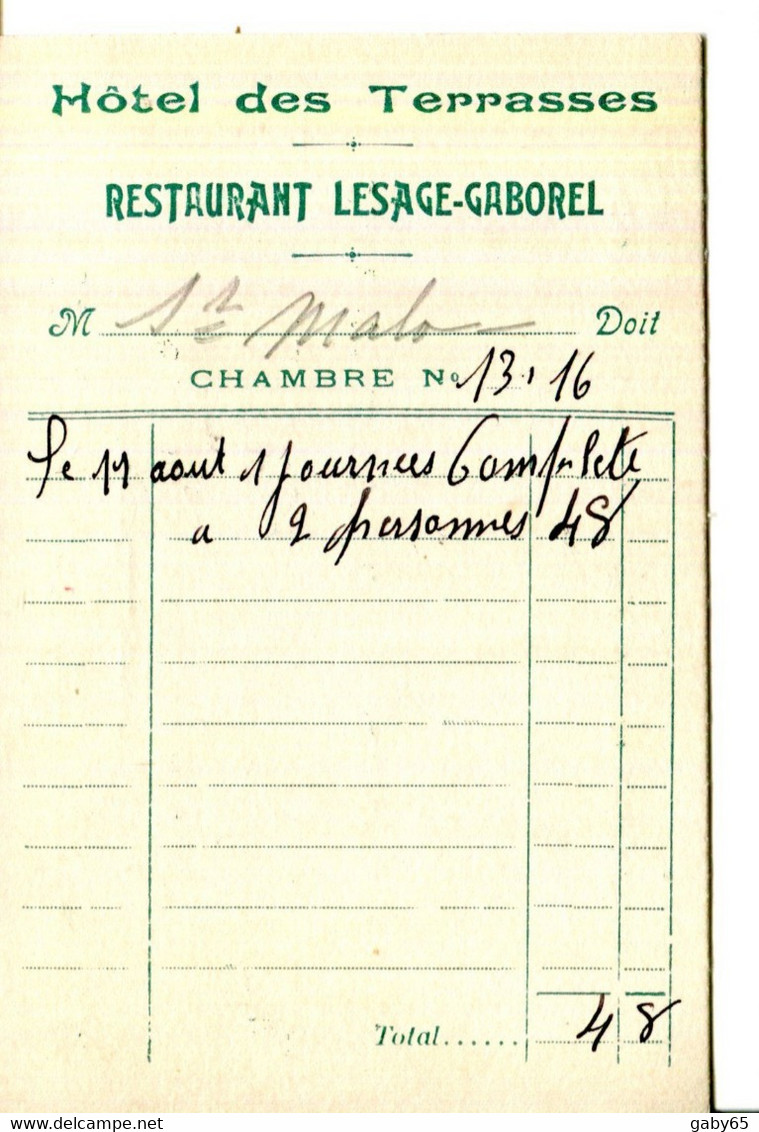 Hôtel des Terrasses
RESTAURANT LESAGE-GABOREL
M St Malo Doit
CHAMBRE No 13, 16
Le 11 aout 1 journees Complete
a 2 personnes 48
Total...... 48
gaby65